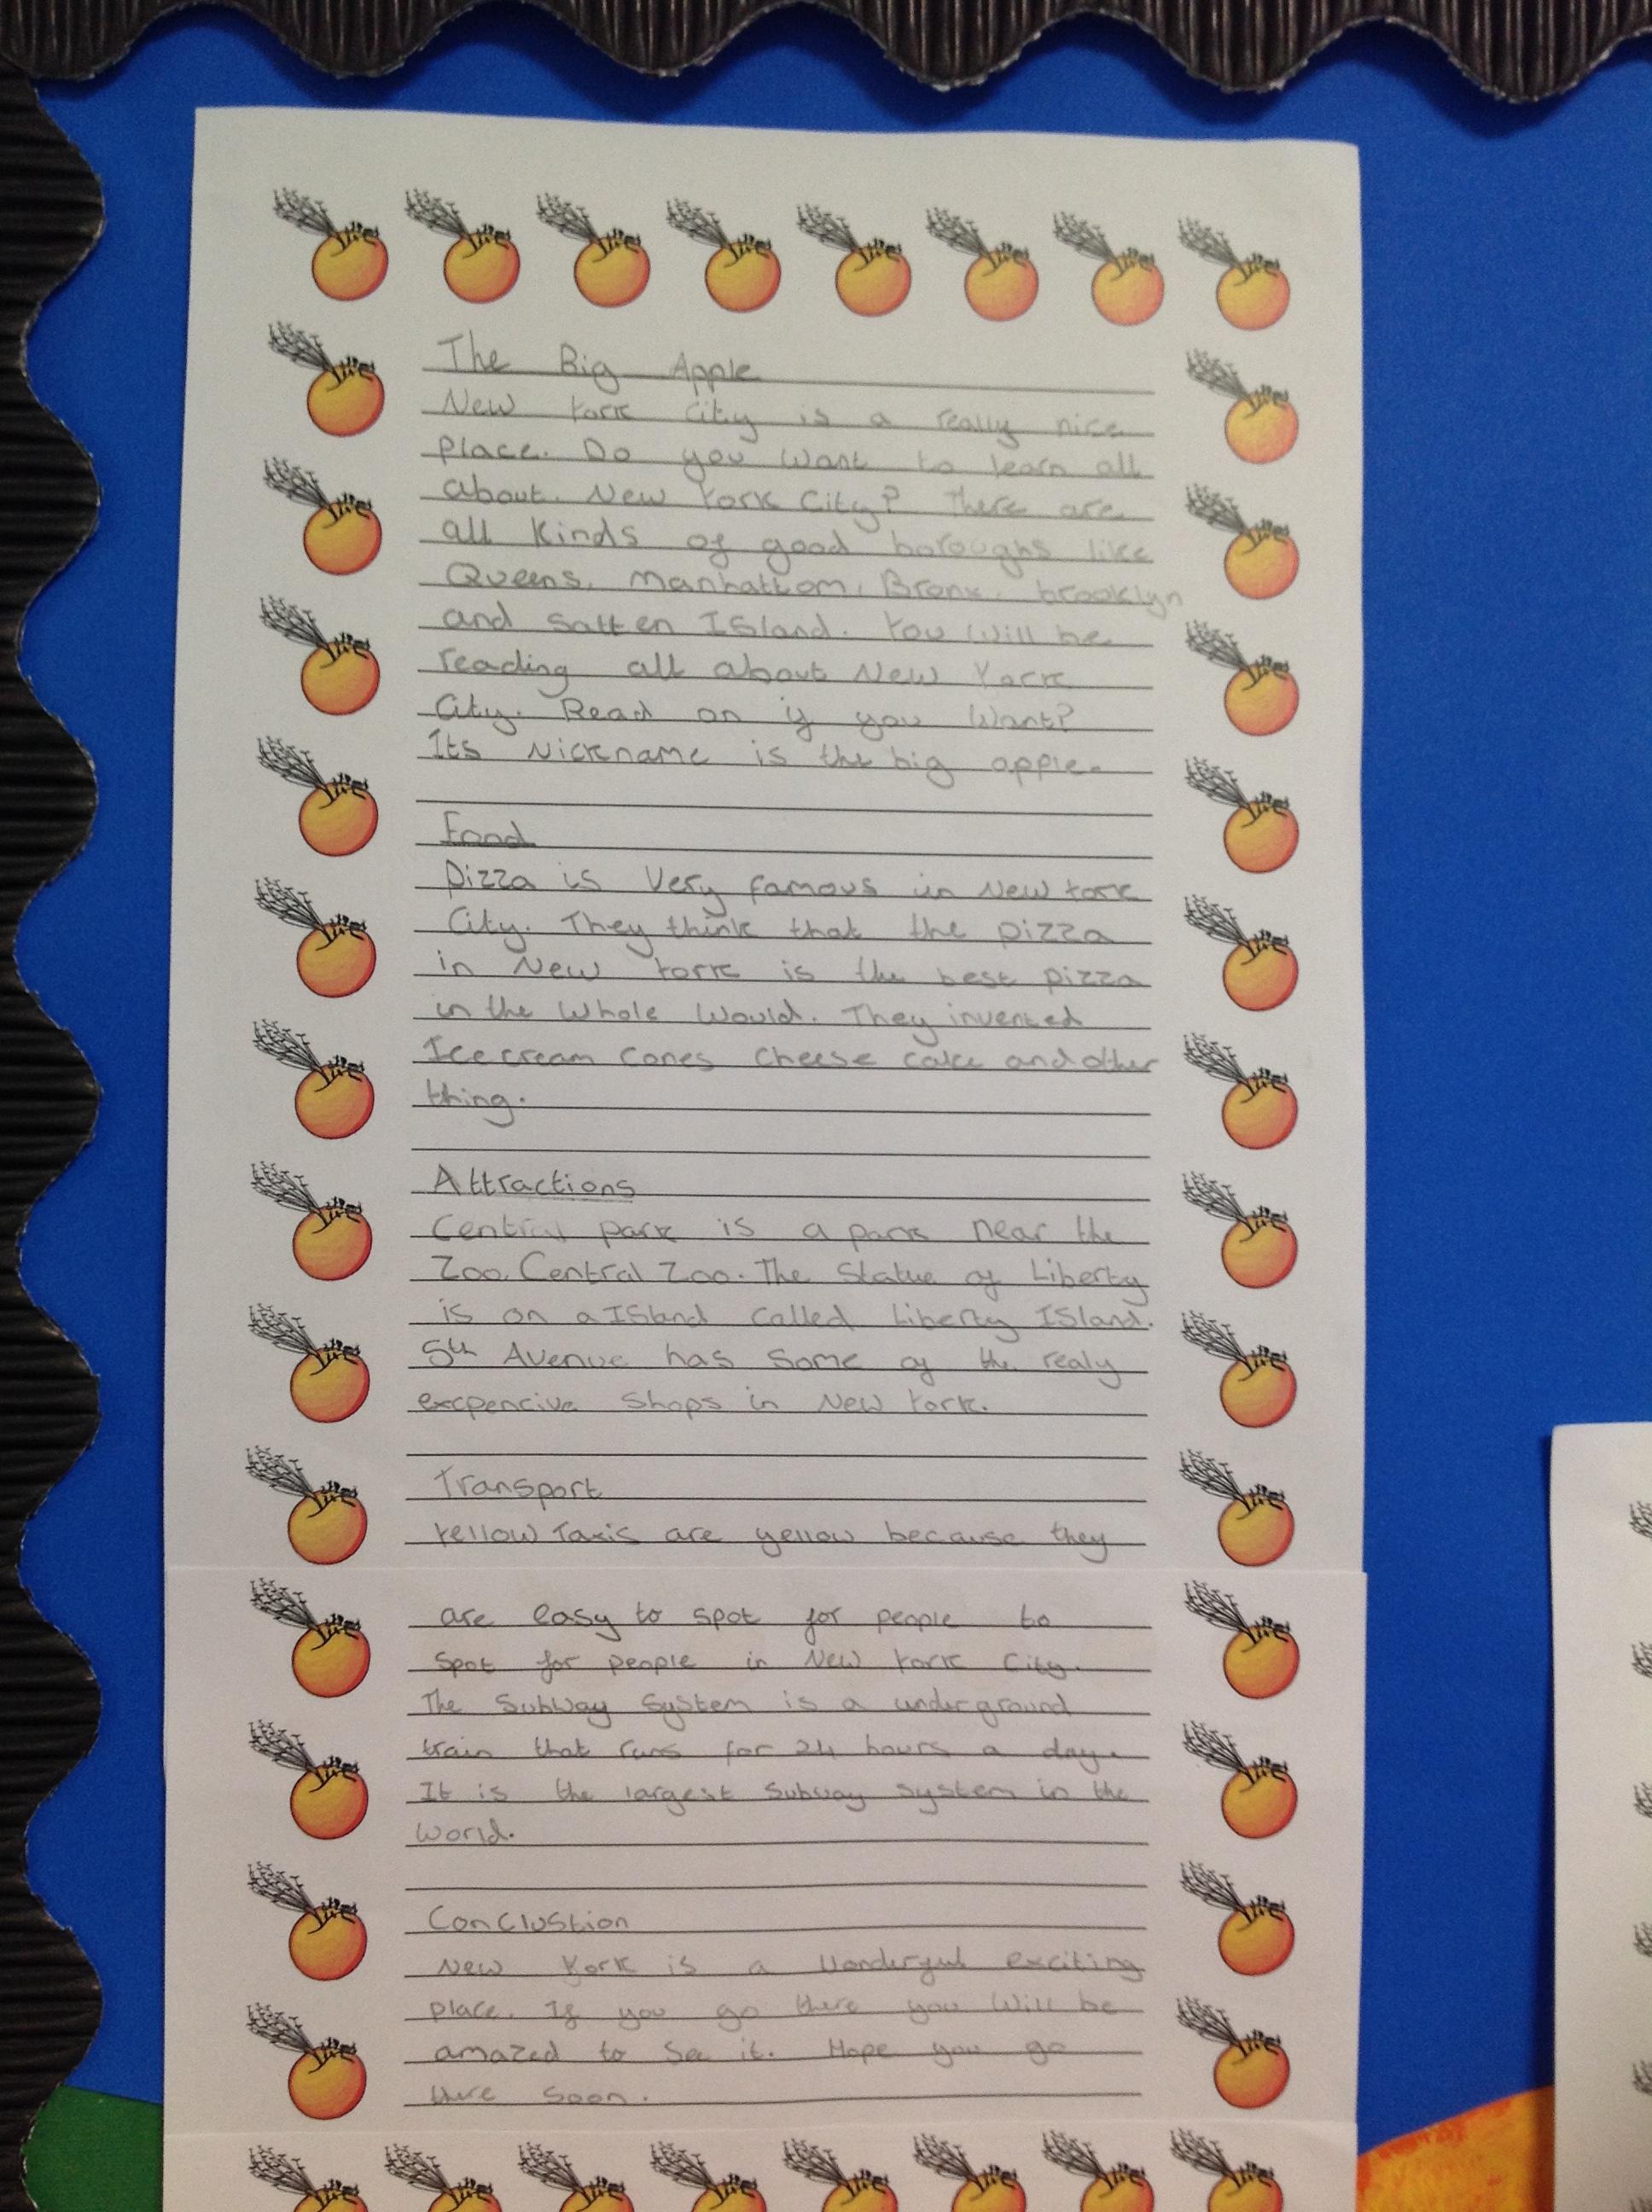 The Big Apple
New York City is a really nice
place. Do you want to learn all
about. New York City? There are
all kinds of good boroughs like
Queens, Manhattom, Bronx, brooklyn
and Satten Island. You will be
reading all about New York
City. Read on if you want?
Its Nickname is the big apple.
Food
Pizza is very famous in New York
City. They think that the pizza
in New York is the best pizza
in the whole would. They invented
Ice cream cones cheese cake and other
thing.
Attractions
Central park is a park near the
Zoo, Central Zoo. The Statue of Liberty
is on a Island called Liberty Island.
5th Avenue has some of the realy
excpencive shops in New York.
Transport
Yellow Taxis are yellow because they
are easy to spot for people to
spot for people in New York City.
The Subway System is a underground
train that runs for 24 hours a day.
It is the largest Subway system in the
world.
Conclustion
New York is a wonderful exciting
place. If you go there you will be
amazed to see it. Hope you go
there soon.